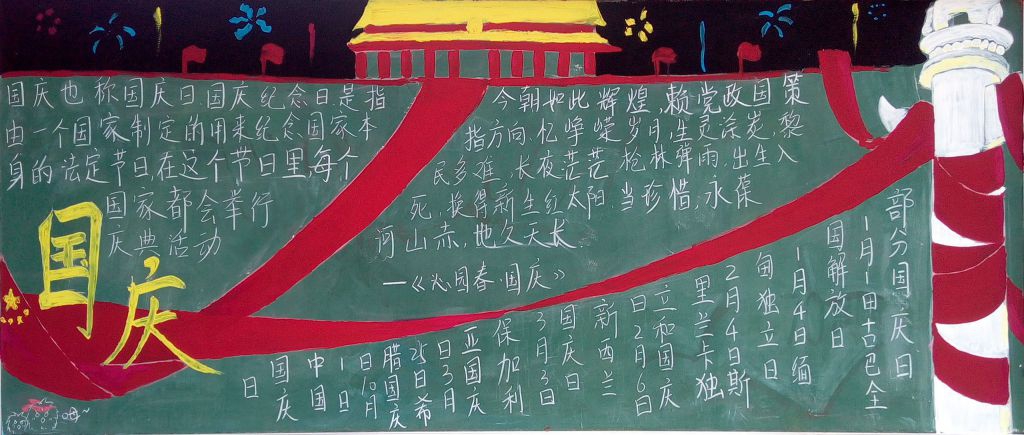 国庆也称国庆日、国庆纪念日.是指
由一个国家制定的用来纪念国家本
身的法定节日.在这个节日里,每个
国家都会举行
庆典活动
国庆
今朝如此辉煌,赖党政国策
指方向.忆峥嵘岁月,生灵涂炭,黎
民多难,长夜茫茫,枪林弹雨,出生入
死,换得新生红太阳.当珍惜,永葆
河山赤,地久天长
—《沁园春·国庆》
部分国庆日
1月1日古巴全
国解放日
1月4日缅
甸独立日
2月4日斯
里兰卡独
立和国庆
日2月6日
新西兰
国庆日
3月3日
保加利
亚国庆
日3月
25日希
腊国庆
日10月
1日
中国
国庆
日